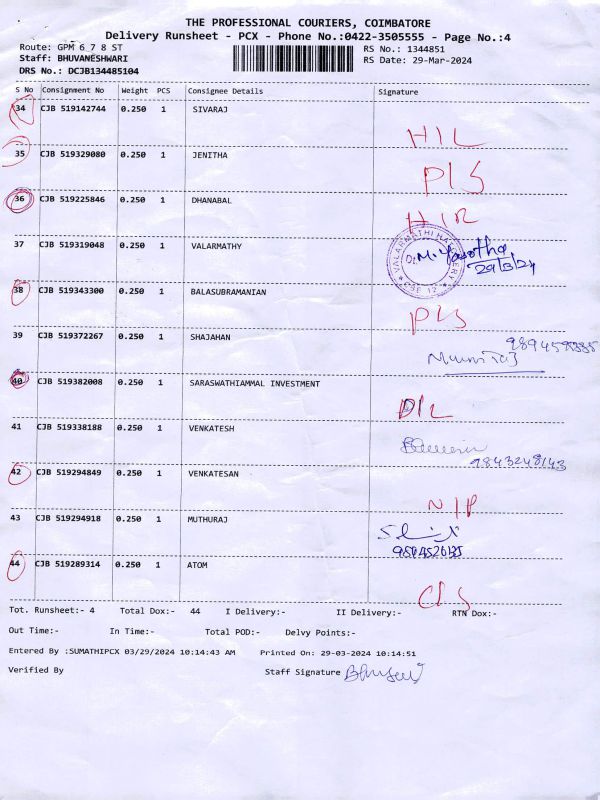 THE PROFESSIONAL COURIERS, COIMBATORE
Delivery Runsheet - PCX - Phone No.:0422-3505555 - Page No.:4
Route: GPM 6 7 8 ST
RS No.: 1344851
Staff: BHUVANESHWARI
RS Date: 29-Mar-2024
DRS No.: DCJB134485104
S No Consignment No Weight PCS Consignee Details Signature
34 CJB 519142744 0.250 1 SIVARAJ
H/L
35 CJB 519329080 0.250 1 JENITHA
P/S
36 CJB 519225846 0.250 1 DHANABAL
H/R
37 CJB 519319048 0.250 1 VALARMATHY
29/3/24
38 CJB 519343300 0.250 1 BALASUBRAMANIAN
P/S
39 CJB 519372267 0.250 1 SHAJAHAN
40 CJB 519382008 0.250 1 SARASWATHIAMMAL INVESTMENT
D/L
41 CJB 519338188 0.250 1 VENKATESH
9843248143
42 CJB 519294849 0.250 1 VENKATESAN
N/P
43 CJB 519294918 0.250 1 MUTHURAJ
44 CJB 519289314 0.250 1 ATOM
C/S
Tot. Runsheet:- 4 Total Dox:- 44 I Delivery:- II Delivery:- RTN Dox:-
Out Time:- In Time:- Total POD:- Delvy Points:-
Entered By :SUMATHIPCX 03/29/2024 10:14:43 AM Printed On: 29-03-2024 10:14:51
Verified By Staff Signature